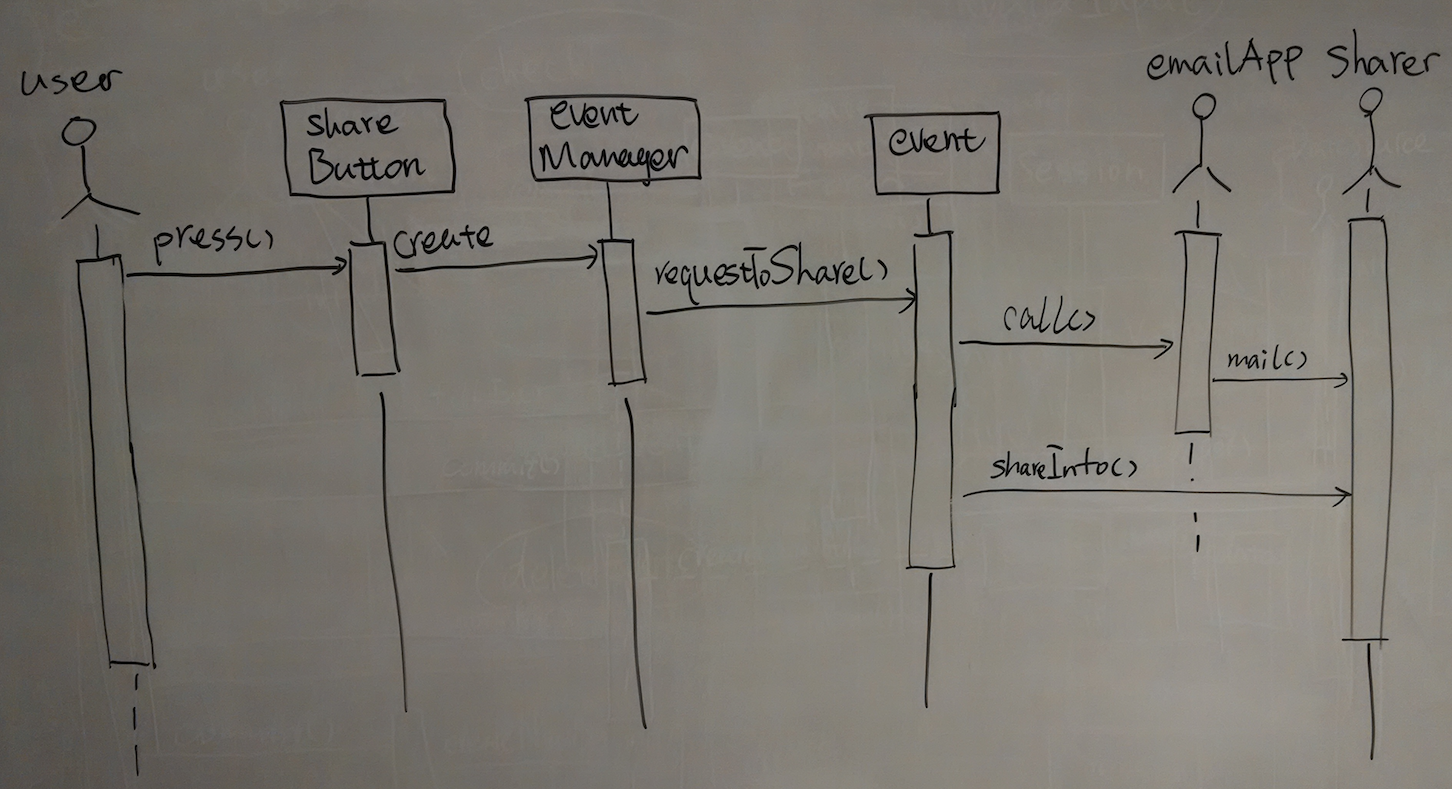 user
share
Button
event
Manager
event
emailApp
Sharer
press()
create
requestToShare()
call()
mail()
shareInto()